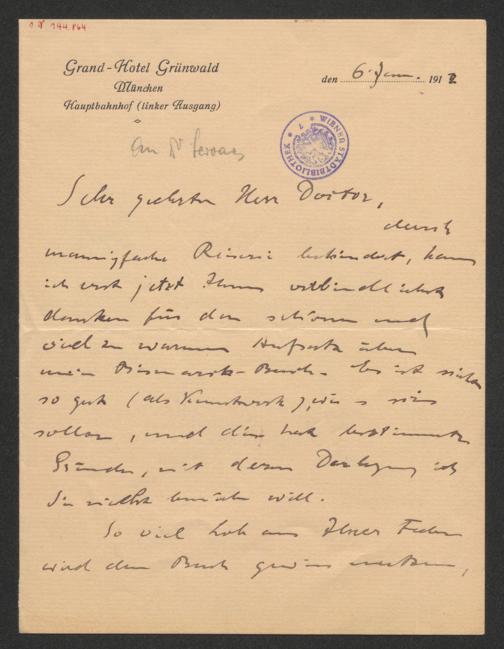 I.N. 144.864
Grand-Hotel Grünwald
München
Hauptbahnhof (linker Ausgang)
den 6. Jan. 1912
WIENER STADTBIBLIOTHEK
An Dr Servaes
Sehr geehrter Herr Doctor,
durch
mannigfache Reiserei behindert, kann
ich erst jetzt Ihnen verbindlichst
danken für den schönen und
viel zu warmen Aufsatz über
mein Bismarck-Buch. Es ist nicht
so gut (als Kunstwerk), wie es sein
sollte, und dies hat bestimmte
Gründe, mit deren Darlegung ich
Sie nicht bemühn will.
So viel Lob aus Ihrer Feder
wird dem Buch gewiss nutzen,